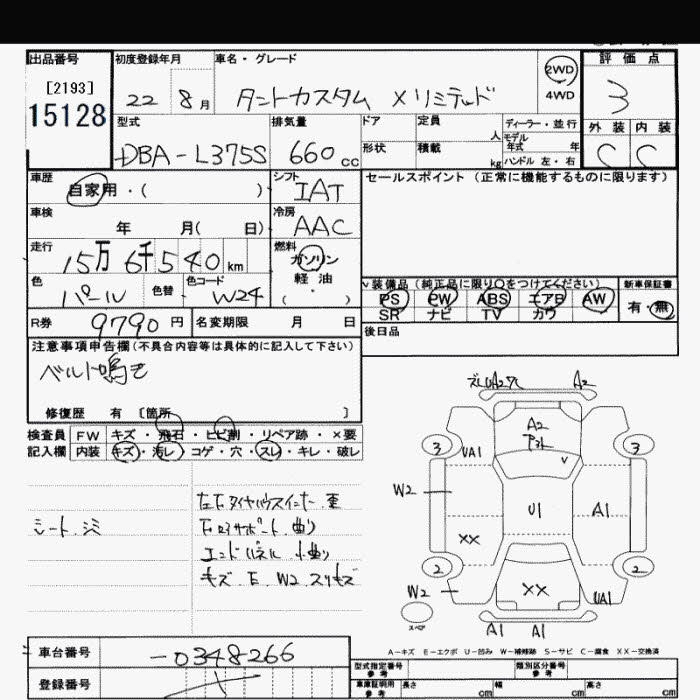 出品番号 初度登録年月 車名・グレード 2WD 評価点
[2193]
15128 22 8月 タントカスタム Xリミテッド 4WD 3
型式 排気量 ドア 定員 人 ディーラー・並行 外装 内装
DBA-L375S 660cc 形状 積載 kg モデル年式 年 ハンドル 左・右 C C
車歴 自家用・( ) シフト IAT セールスポイント (正常に機能するものに限ります)
車検 年 月( 日) 冷房 AAC
走行 15万6千540km 燃料 ガソリン
色 パール 色替 色コード W24 軽油 ( ・ )
装備品 (純正品に限り○をつけてください) 新車保証書
PS PW ABS エアB AW 有・無
SR ナビ TV カワ
R券 9790円 名変期限 月 日 後日品
注意事項申告欄(不具合内容等は具体的に記入して下さい)
ベルト鳴き
修復歴 有 [箇所 ]
検査員 FW キズ・飛石・ヒビ割・リペア跡・×要
記入欄 内装 キズ・汚レ・コゲ・穴・スレ・キレ・破レ
シート.シミ
エンドパネル 小曲り
キズ.E.W2.スリキズ
A2 A2
3 UA1 3
W2 U1 A1
XX
2 XX 2
W2 UA1
スペア A1 A1
A-キズ E-エクボ U-凹み W-補修跡 S-サビ C-腐食 XX-交換済
車台番号 -0348266
登録番号
型式指定番号 参考 類別区分番号 参考
車庫証明用 参考 長さ cm 幅 cm 高さ cm